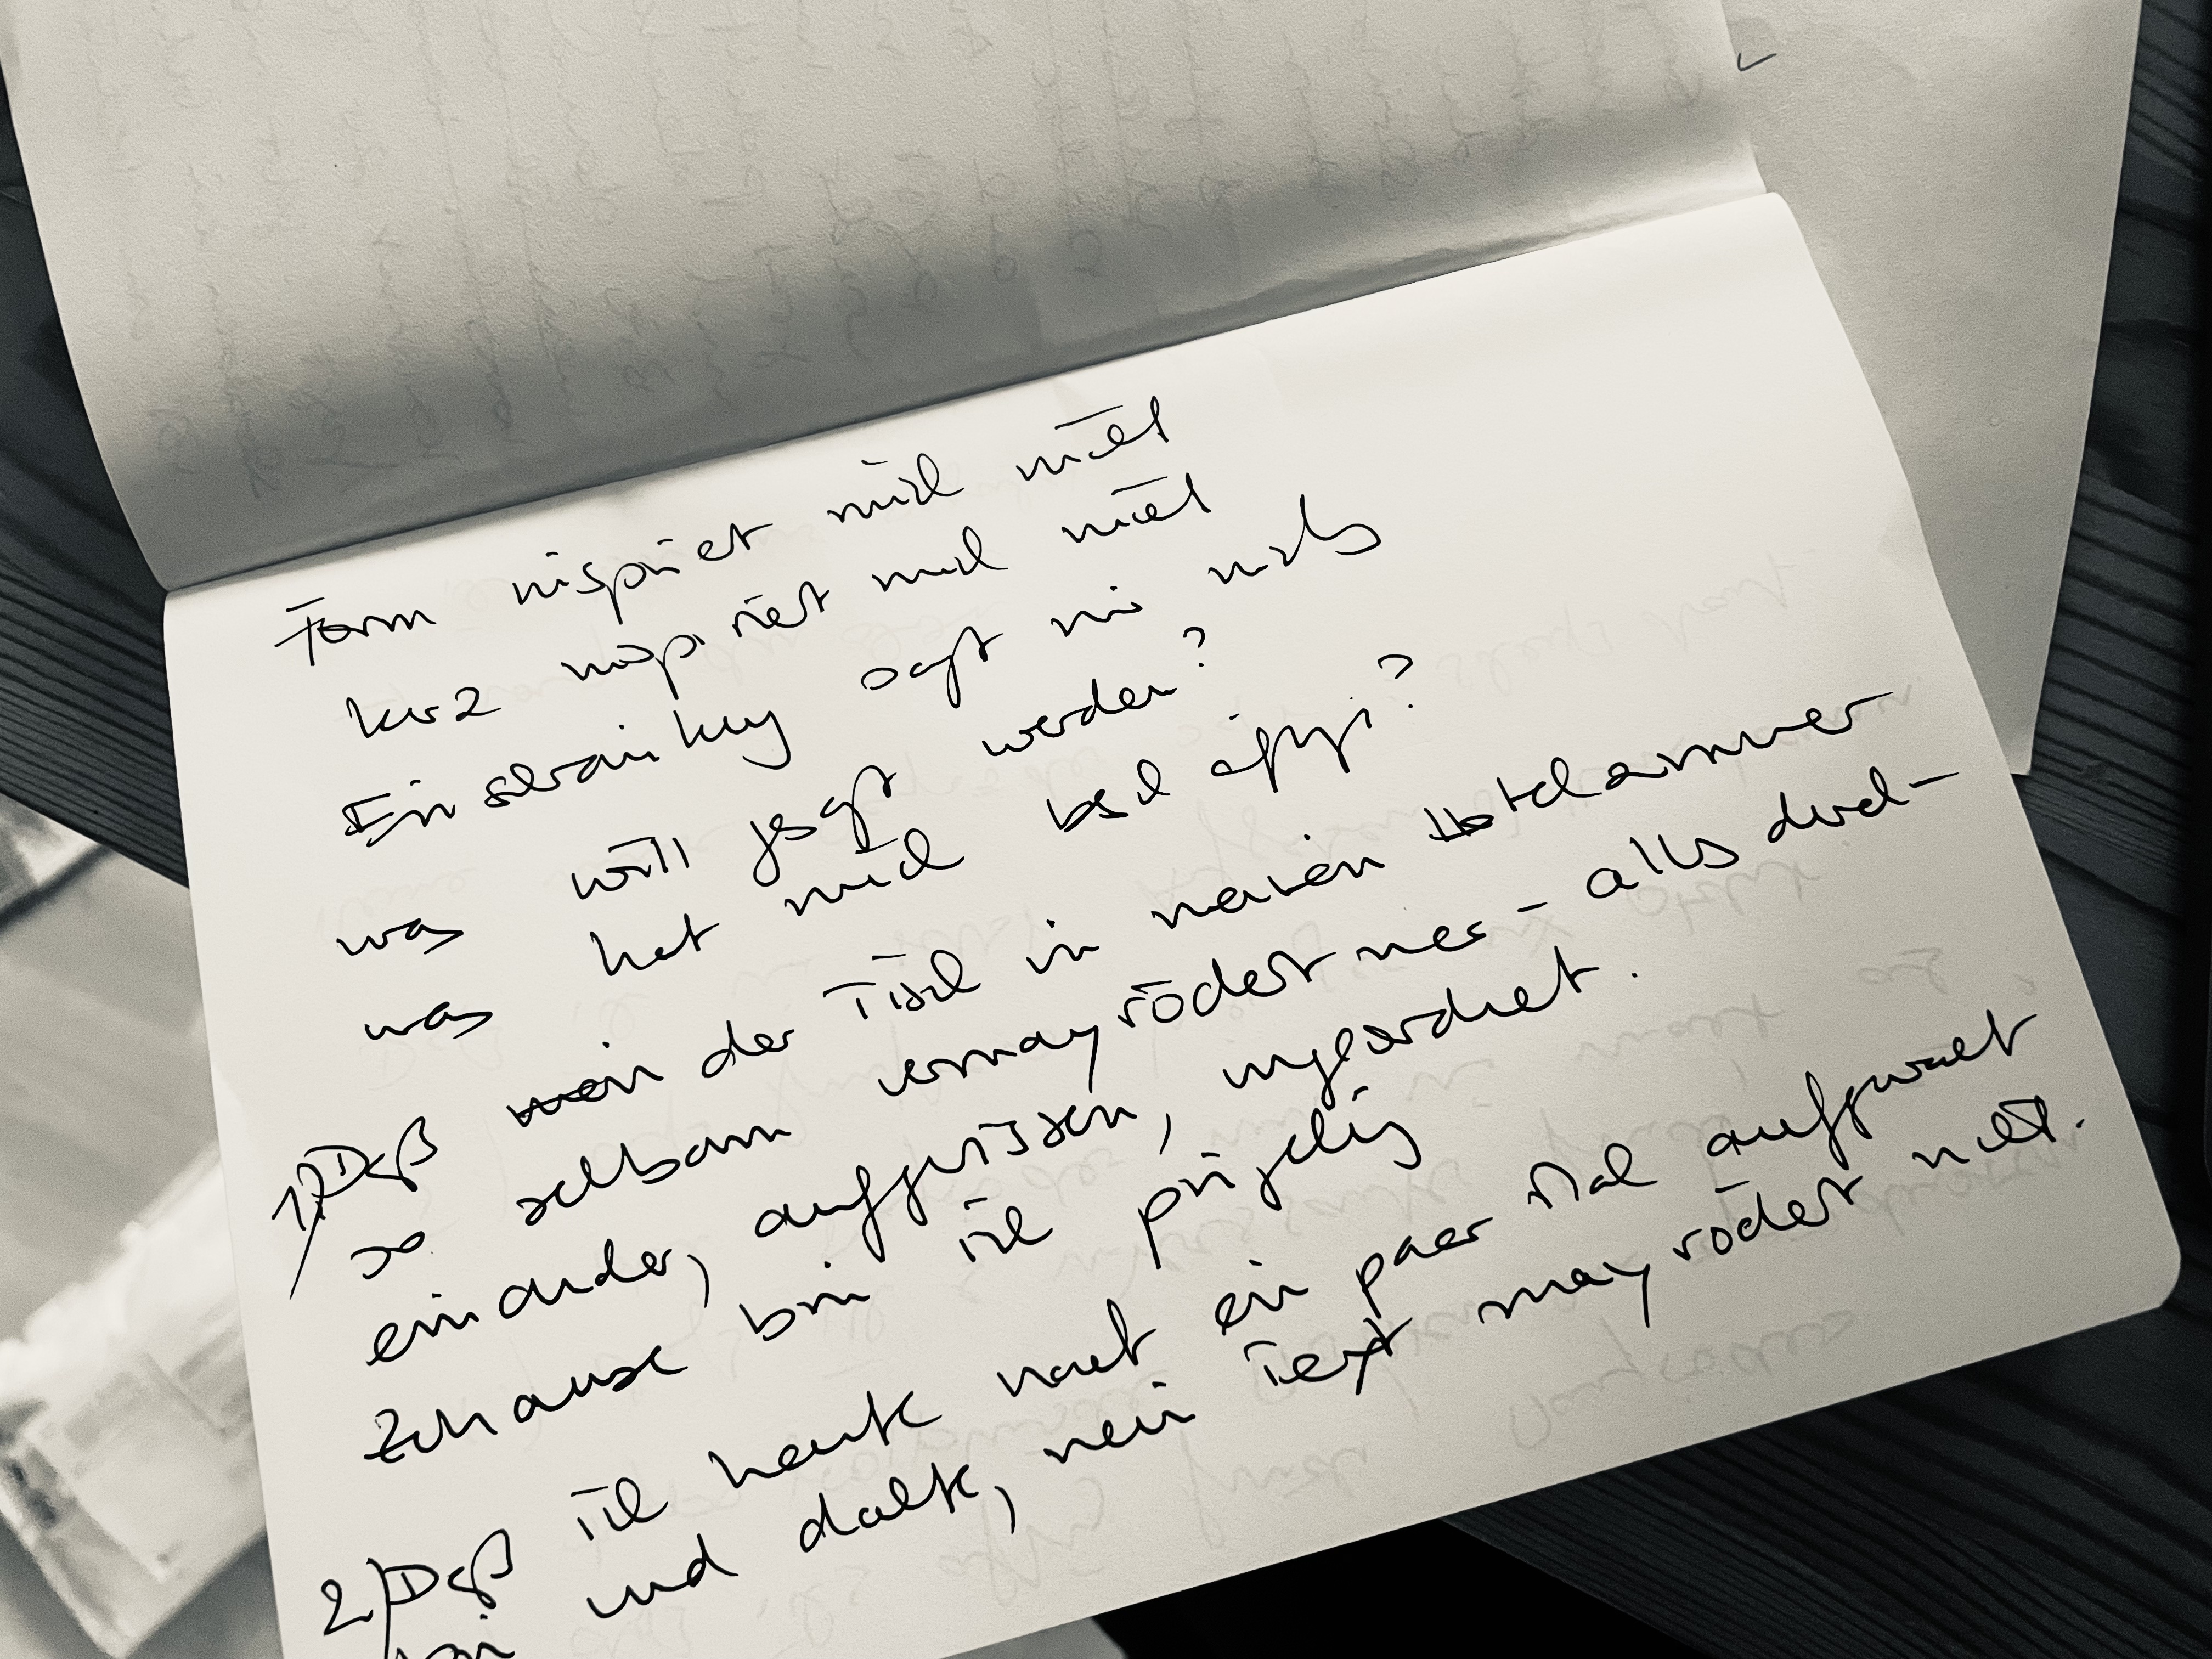 Form inspiriert mich nicht
kurz inspiriert mich nicht
Einschränkung sagt mir nichts
was will gesagt werden?
was hat mich beschäftigt?
1) Daß mein der Tisch in meinem Hotelzimmer
so seltsam vermayrödert war – alles durch-
einander, aufgerissen, ungeordnet.
Zuhause bin ich pingelig
2) Daß ich heute nacht ein paar Mal aufgewacht
bin und dachte, mein Text mayrödert nicht.